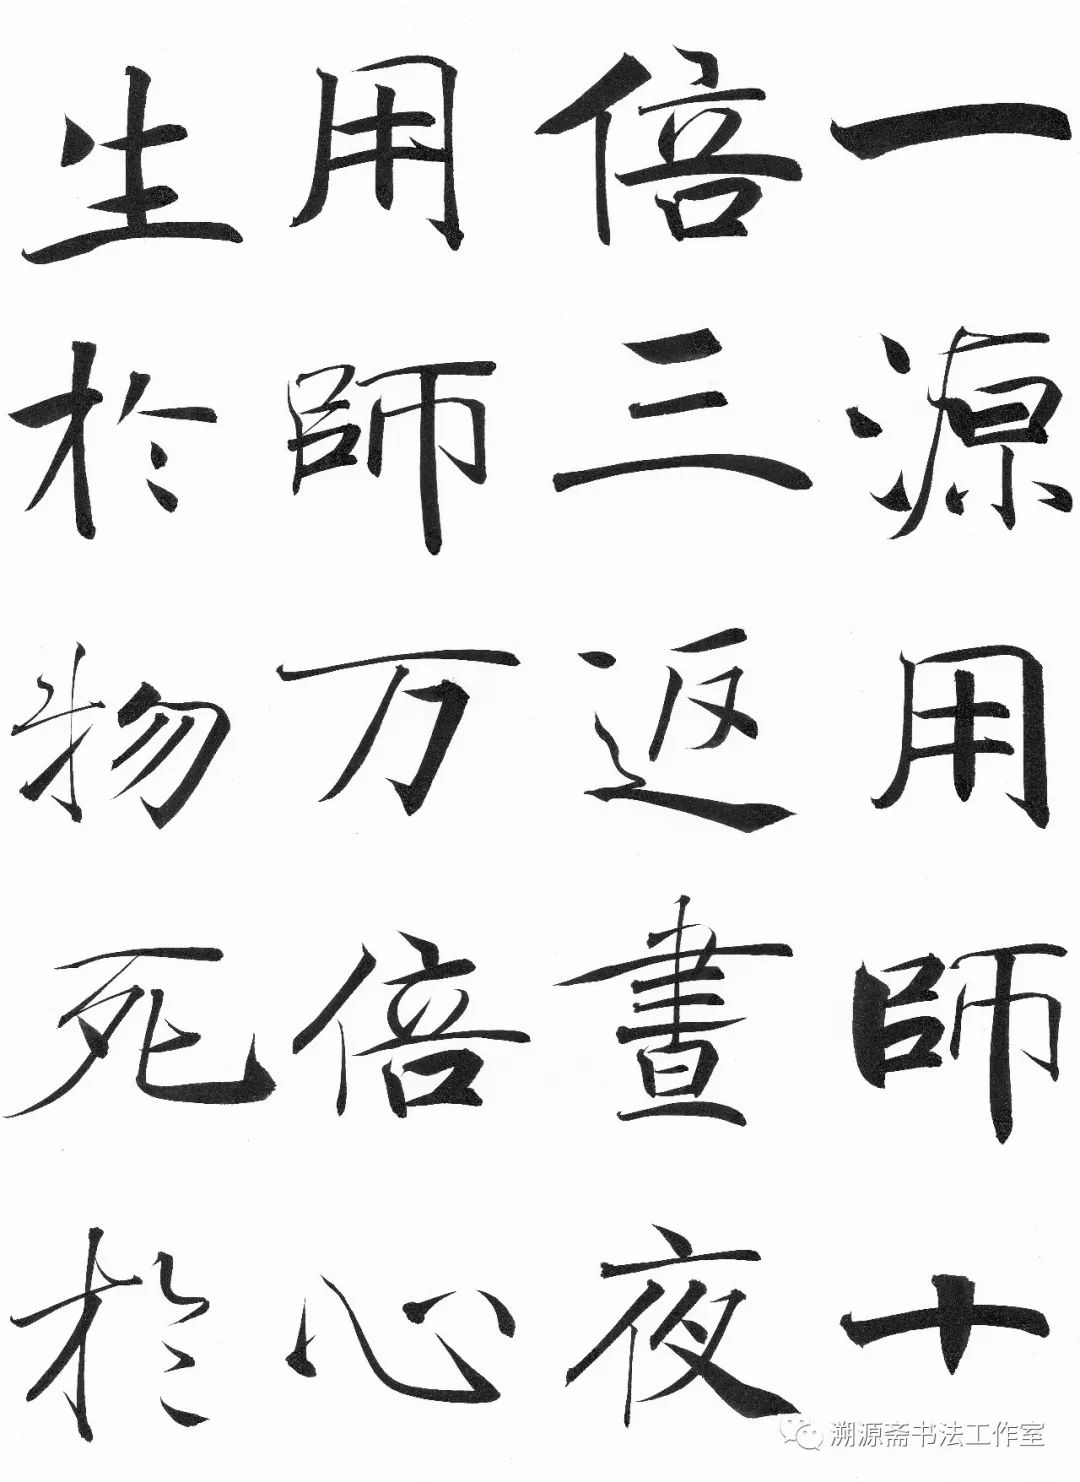 一源用師十
倍三返晝夜
用師万倍心
生於物死於
溯源斋书法工作室